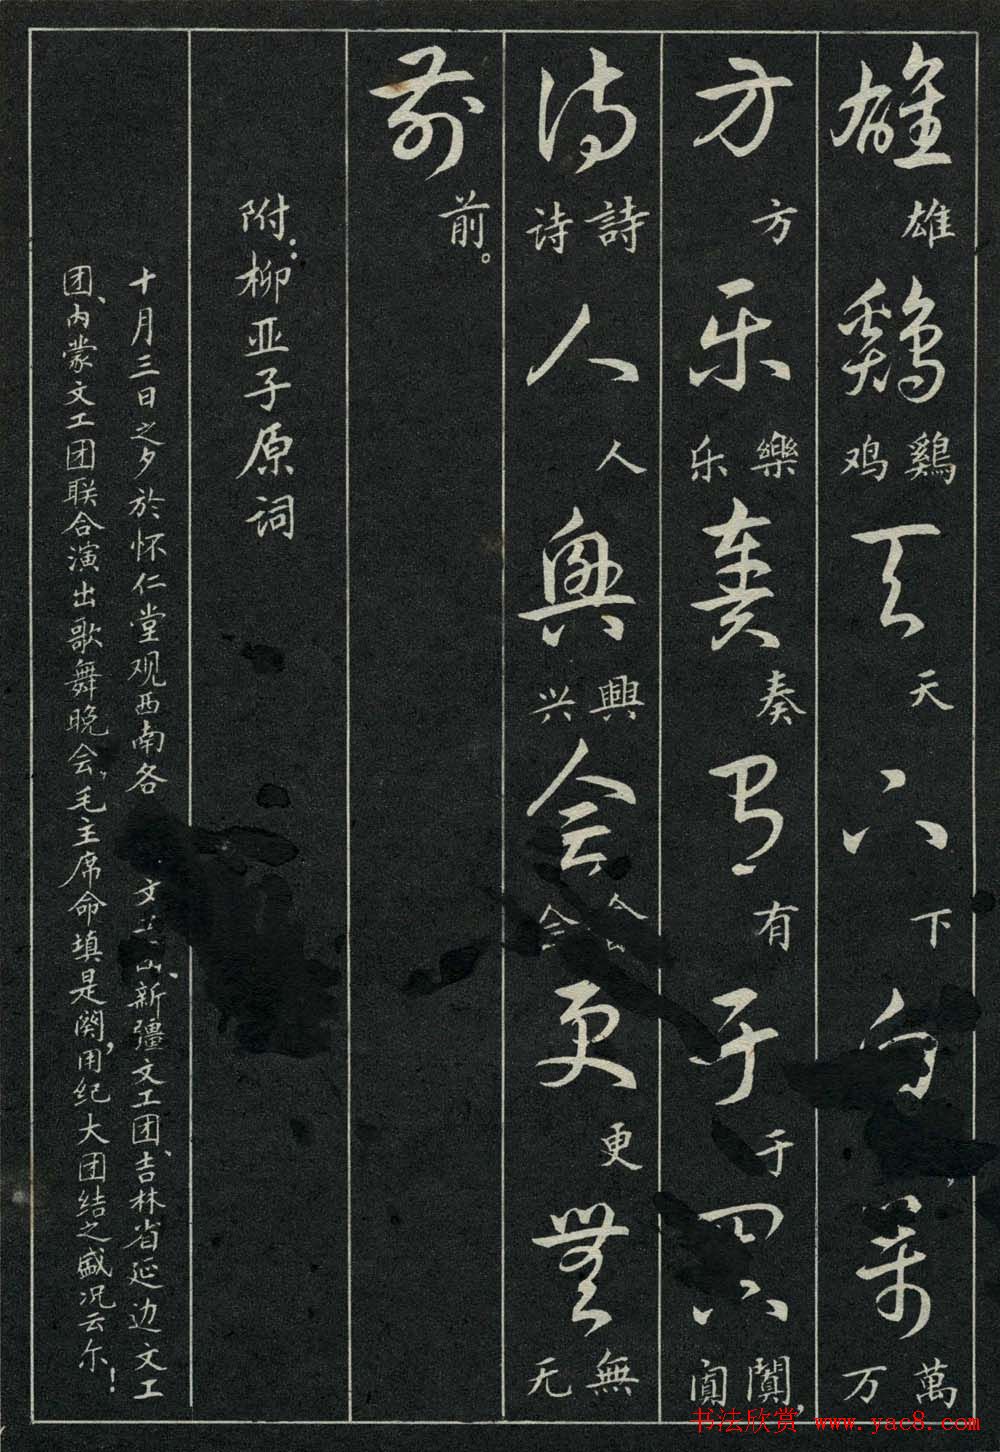 雄 雄 鷄 鷄 鸡 天 天 下 下 白 , 萬 萬 万
方 方 乐 樂 乐 奏 奏 有 有 于 于 阗 闐, 阗
诗 詩 诗 人 人 興 興 兴 会 會 会 更 更 無 無 无
前 前。
附:柳亚子原词
十月三日之夕於怀仁堂观西南各 文工团、新疆文工团、吉林省延边文工
团、内蒙文工团联合演出歌舞晚会,毛主席命填是阕,用纪大团结之盛况云尔!
书法欣赏 www.yac8.com